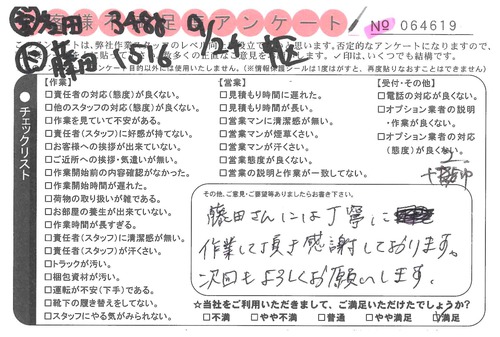 お客様満足度アンケート
№ 064619
3488 9/24
藤田 1516
このアンケートは、弊社作業スタッフのレベル向上に役立てたいと思います。否定的なアンケートになりますので、
アンケート目的以外には使用いたしません。(※情報保護シールは1度はがすと、再度貼りなおすことはできません)
チェックリスト
【作業】
□責任者の対応(態度)が良くない。
□他のスタッフの対応(態度)が良くない。
□作業を見ていて不安がある。
□責任者(スタッフ)に好感が持てない。
□お客様への挨拶が出来ていない。
□ご近所への挨拶・気遣いが無い。
□作業開始前の内容確認がなかった。
□作業開始時間が遅れた。
□荷物の取り扱いが雑である。
□お部屋の養生が出来ていない。
□作業時間が長すぎる。
□責任者(スタッフ)に清潔感が無い。
□責任者(スタッフ)が汗くさい。
□トラックが汚い。
□梱包資材が汚い。
□運転が不安(下手)である。
□靴下の履き替えをしてない。
□スタッフにやる気がみられない。
【営業】
□見積もり時間に遅れた。
□見積もり時間が長い。
□営業マンに清潔感が無い。
□営業マンが煙草くさい。
□営業マンが汗くさい。
□営業態度が良くない。
□営業の説明と作業が一致してない。
【受付・その他】
□電話の対応が良くない。
□オプション業者の説明
・作業が良くない。
□オプション業者の対応
(態度)が良くない。
その他、ご意見・ご要望等ありましたらお書き下さい。
藤田さんには丁寧に
作業して頂き感謝しております。
次回もよろしくお願いします。
☆当社をご利用いただきまして、ご満足いただけたでしょうか?
□不満 □やや不満 □普通 □やや満足 □満足